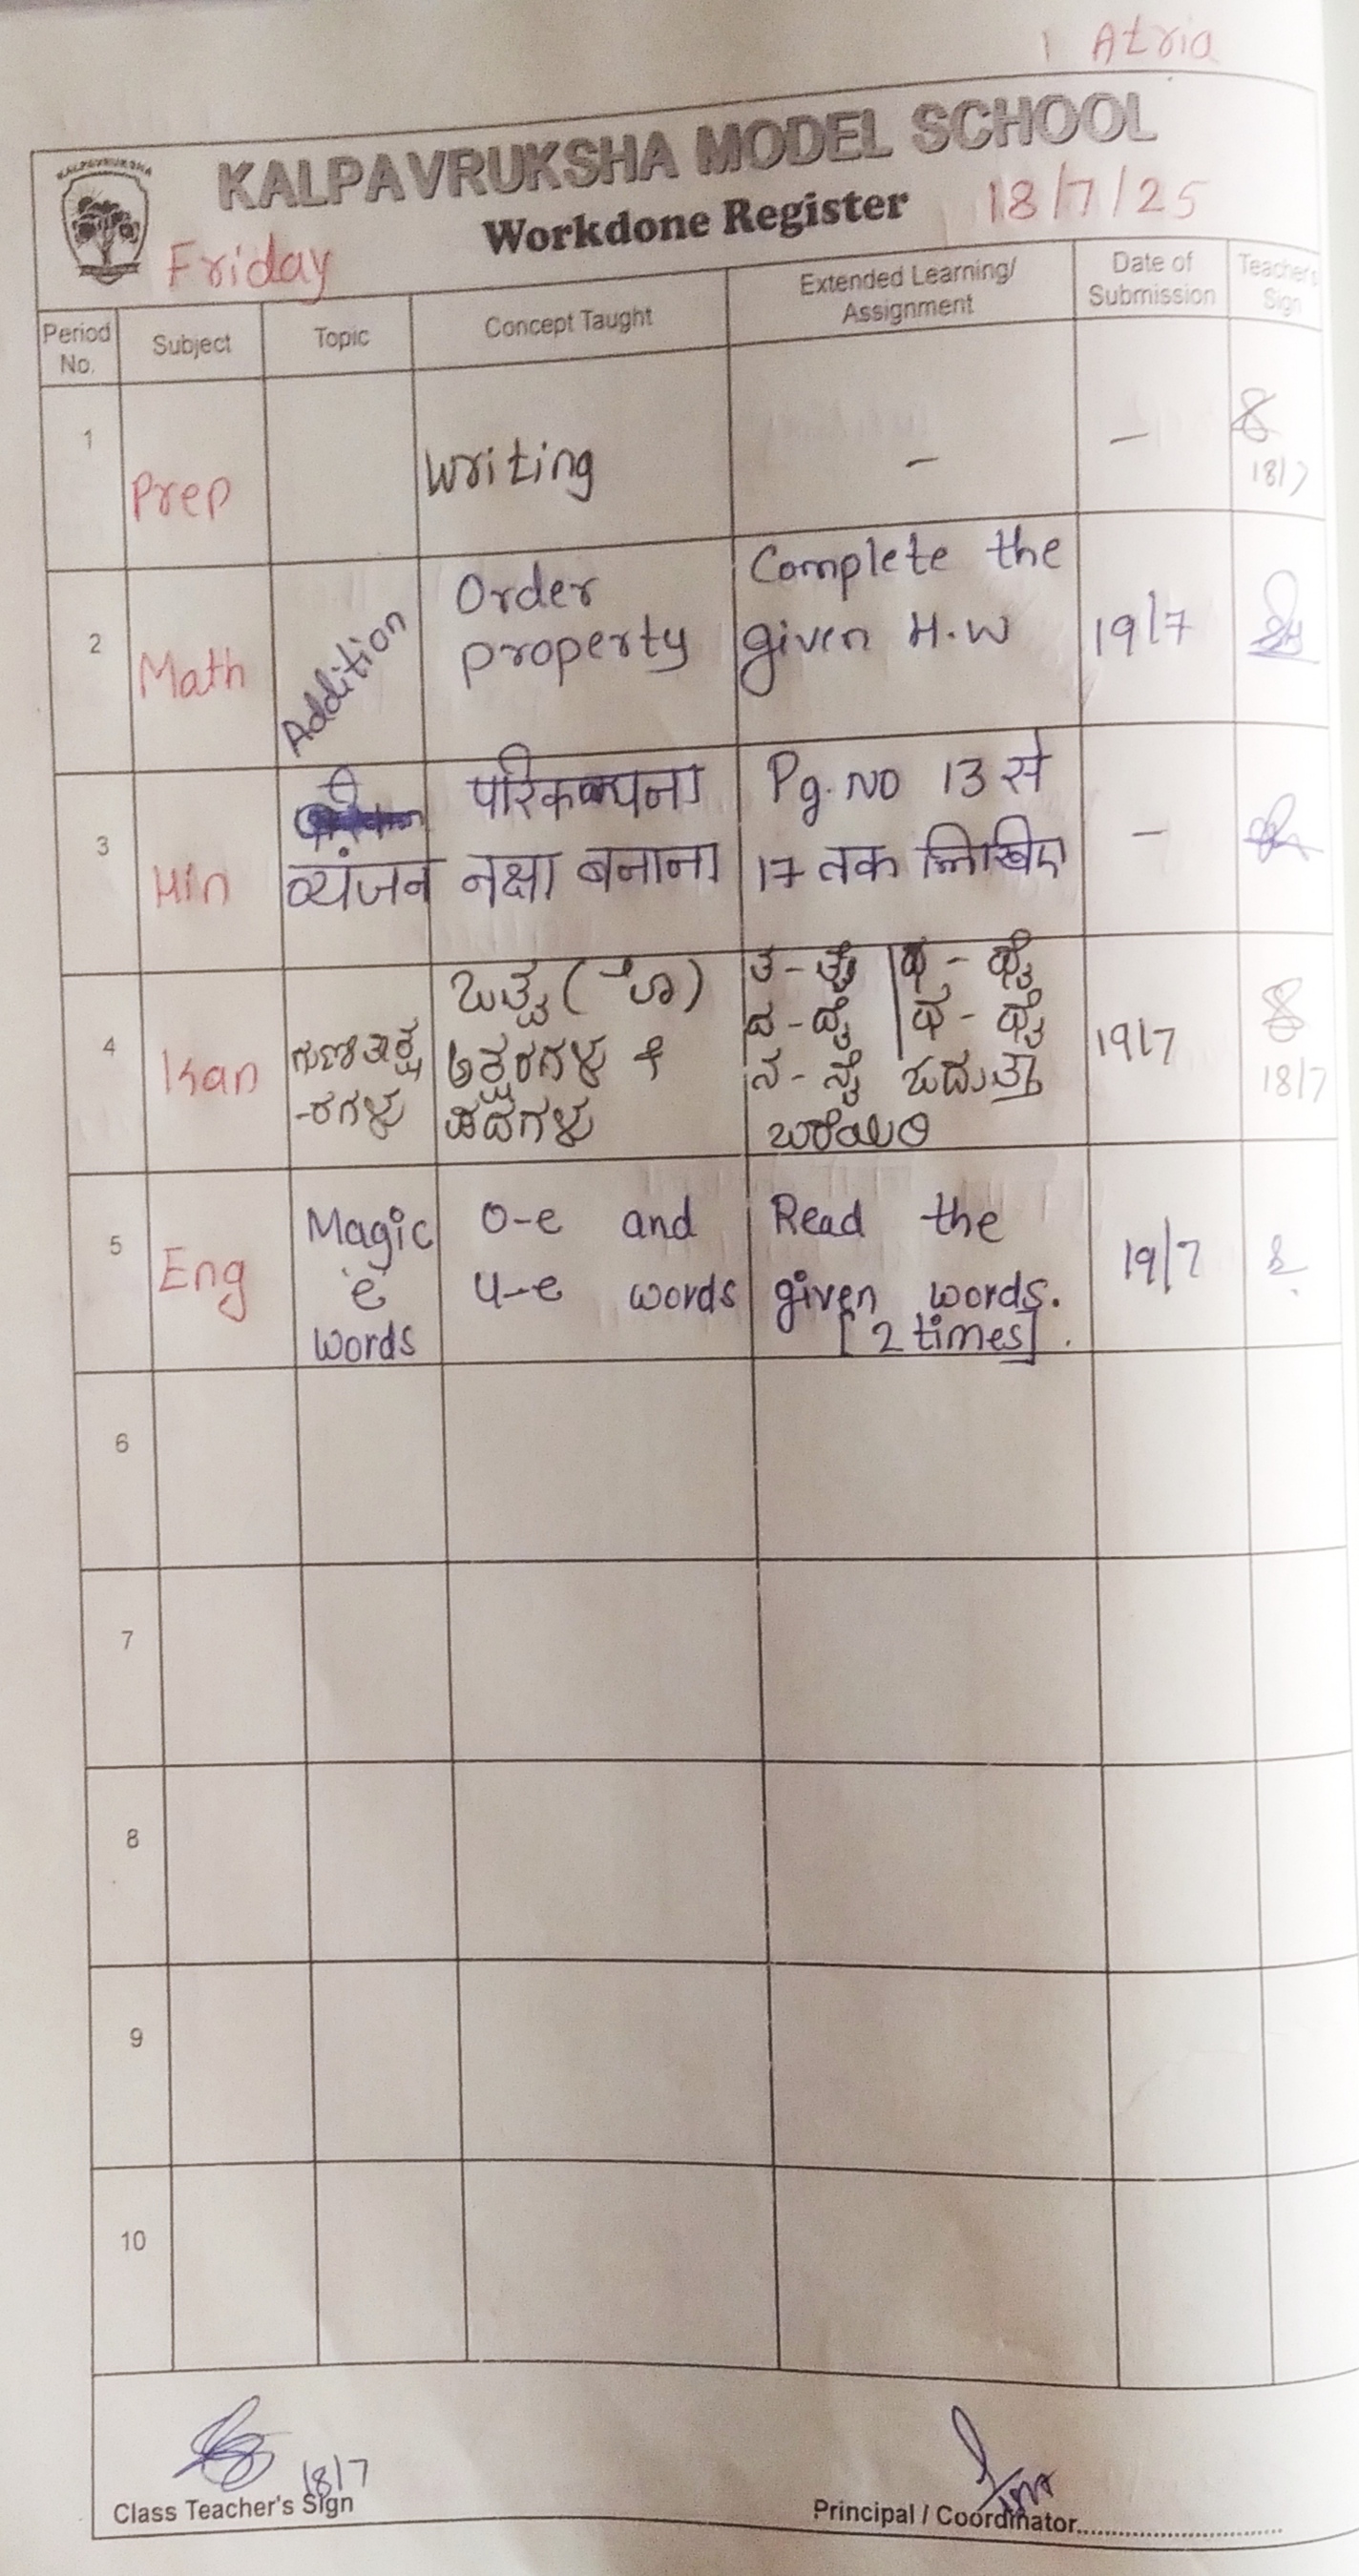 1 Atria
KALPAVRUKSHA
KALPAVRUKSHA MODEL SCHOOL
Workdone Register
18/7/25
Friday
Period No.
Subject
Topic
Concept Taught
Extended Learning/
Assignment
Date of
Submission
Teacher's
Sign
1
Prep
Writing
-
-
18/7
2
Math
Addition
Order
property
Complete the
given H.W
19/7
3
Hin
व्यंजन
परिकल्पना
नक्षा बनाना
Pg. No 13 से
17 तक लिखिए
-
4
Kan
ಗುಣಿತಾಕ್ಷ
-ರಗಳು
ಒತ್ವ
ಅಕ್ಷರಗಳು &
ಪದಗಳು
ಓದುತ್ತಾ
ಬರೆಯಿರಿ
19/7
18/7
5
Eng
Magic
'e'
words
o-e and
u-e words
Read the
given words.
[2 times].
19/7
6
7
8
9
10
18/7
Class Teacher's Sign
Principal / Coordinator